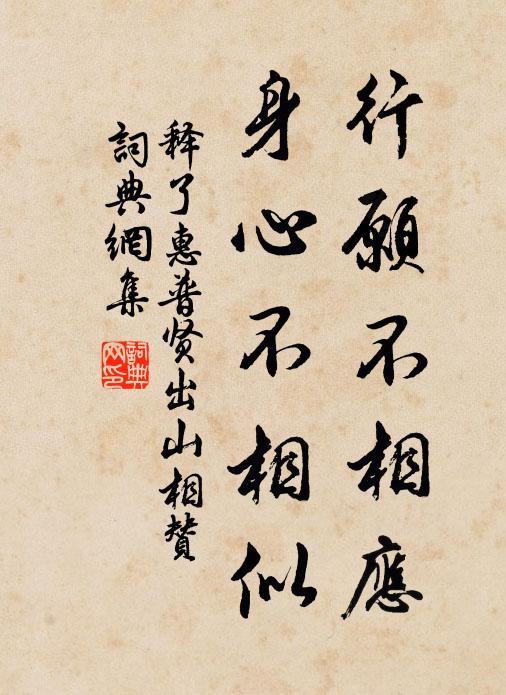 行願不相應
身心不相似
释了惠普贤出山相赞
詞典網集
詞典
网印